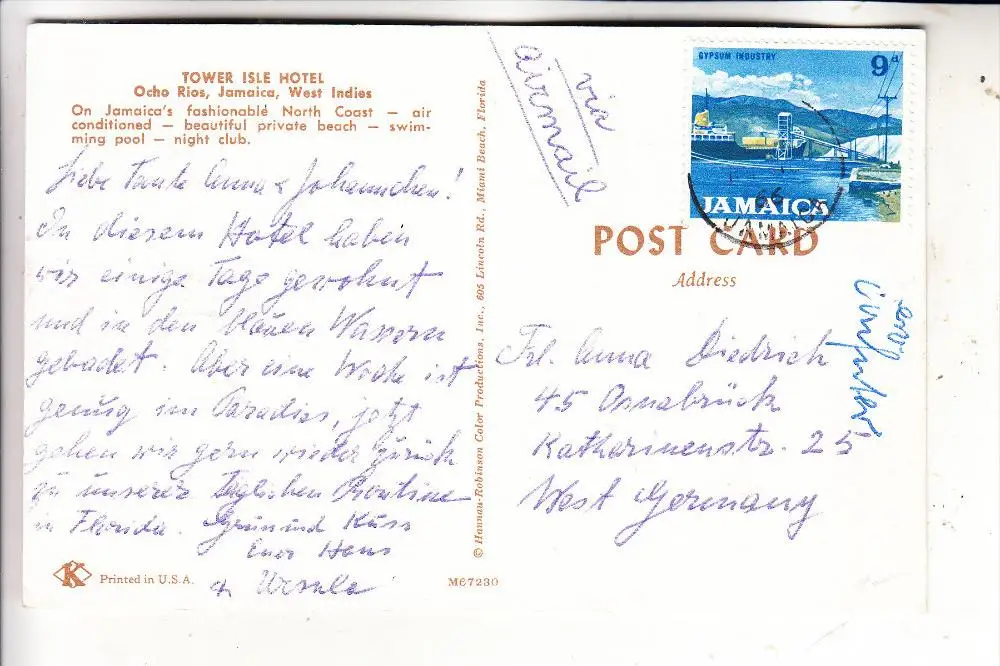 TOWER ISLE HOTEL
Ocho Rios, Jamaica, West Indies
On Jamaica's fashionable North Coast — air
conditioned — beautiful private beach — swim-
ming pool — night club.
Liebe Tante Anna & Johannchen!
In diesem Hotel haben
wir einige Tage gewohnt
und in den blauen Wassern
gebadet. Aber eine Woche ist
genug im Paradies, jetzt
gehen wir gern wieder zurück
zu unserer täglichen Routine
in Florida. Gruß und Kuss
Euer Hans
& Ursula
Printed in U.S.A.
K
M67230
© Hannau-Robinson Color Productions, Inc., 605 Lincoln Rd., Miami Beach, Florida
via
airmail
GYPSUM INDUSTRY
9d
JAMAICA
JAMAICA
POST CARD
Address
Frl. Anna Diedrich
45 Osnabrück
Katharinenstr. 25
West Germany